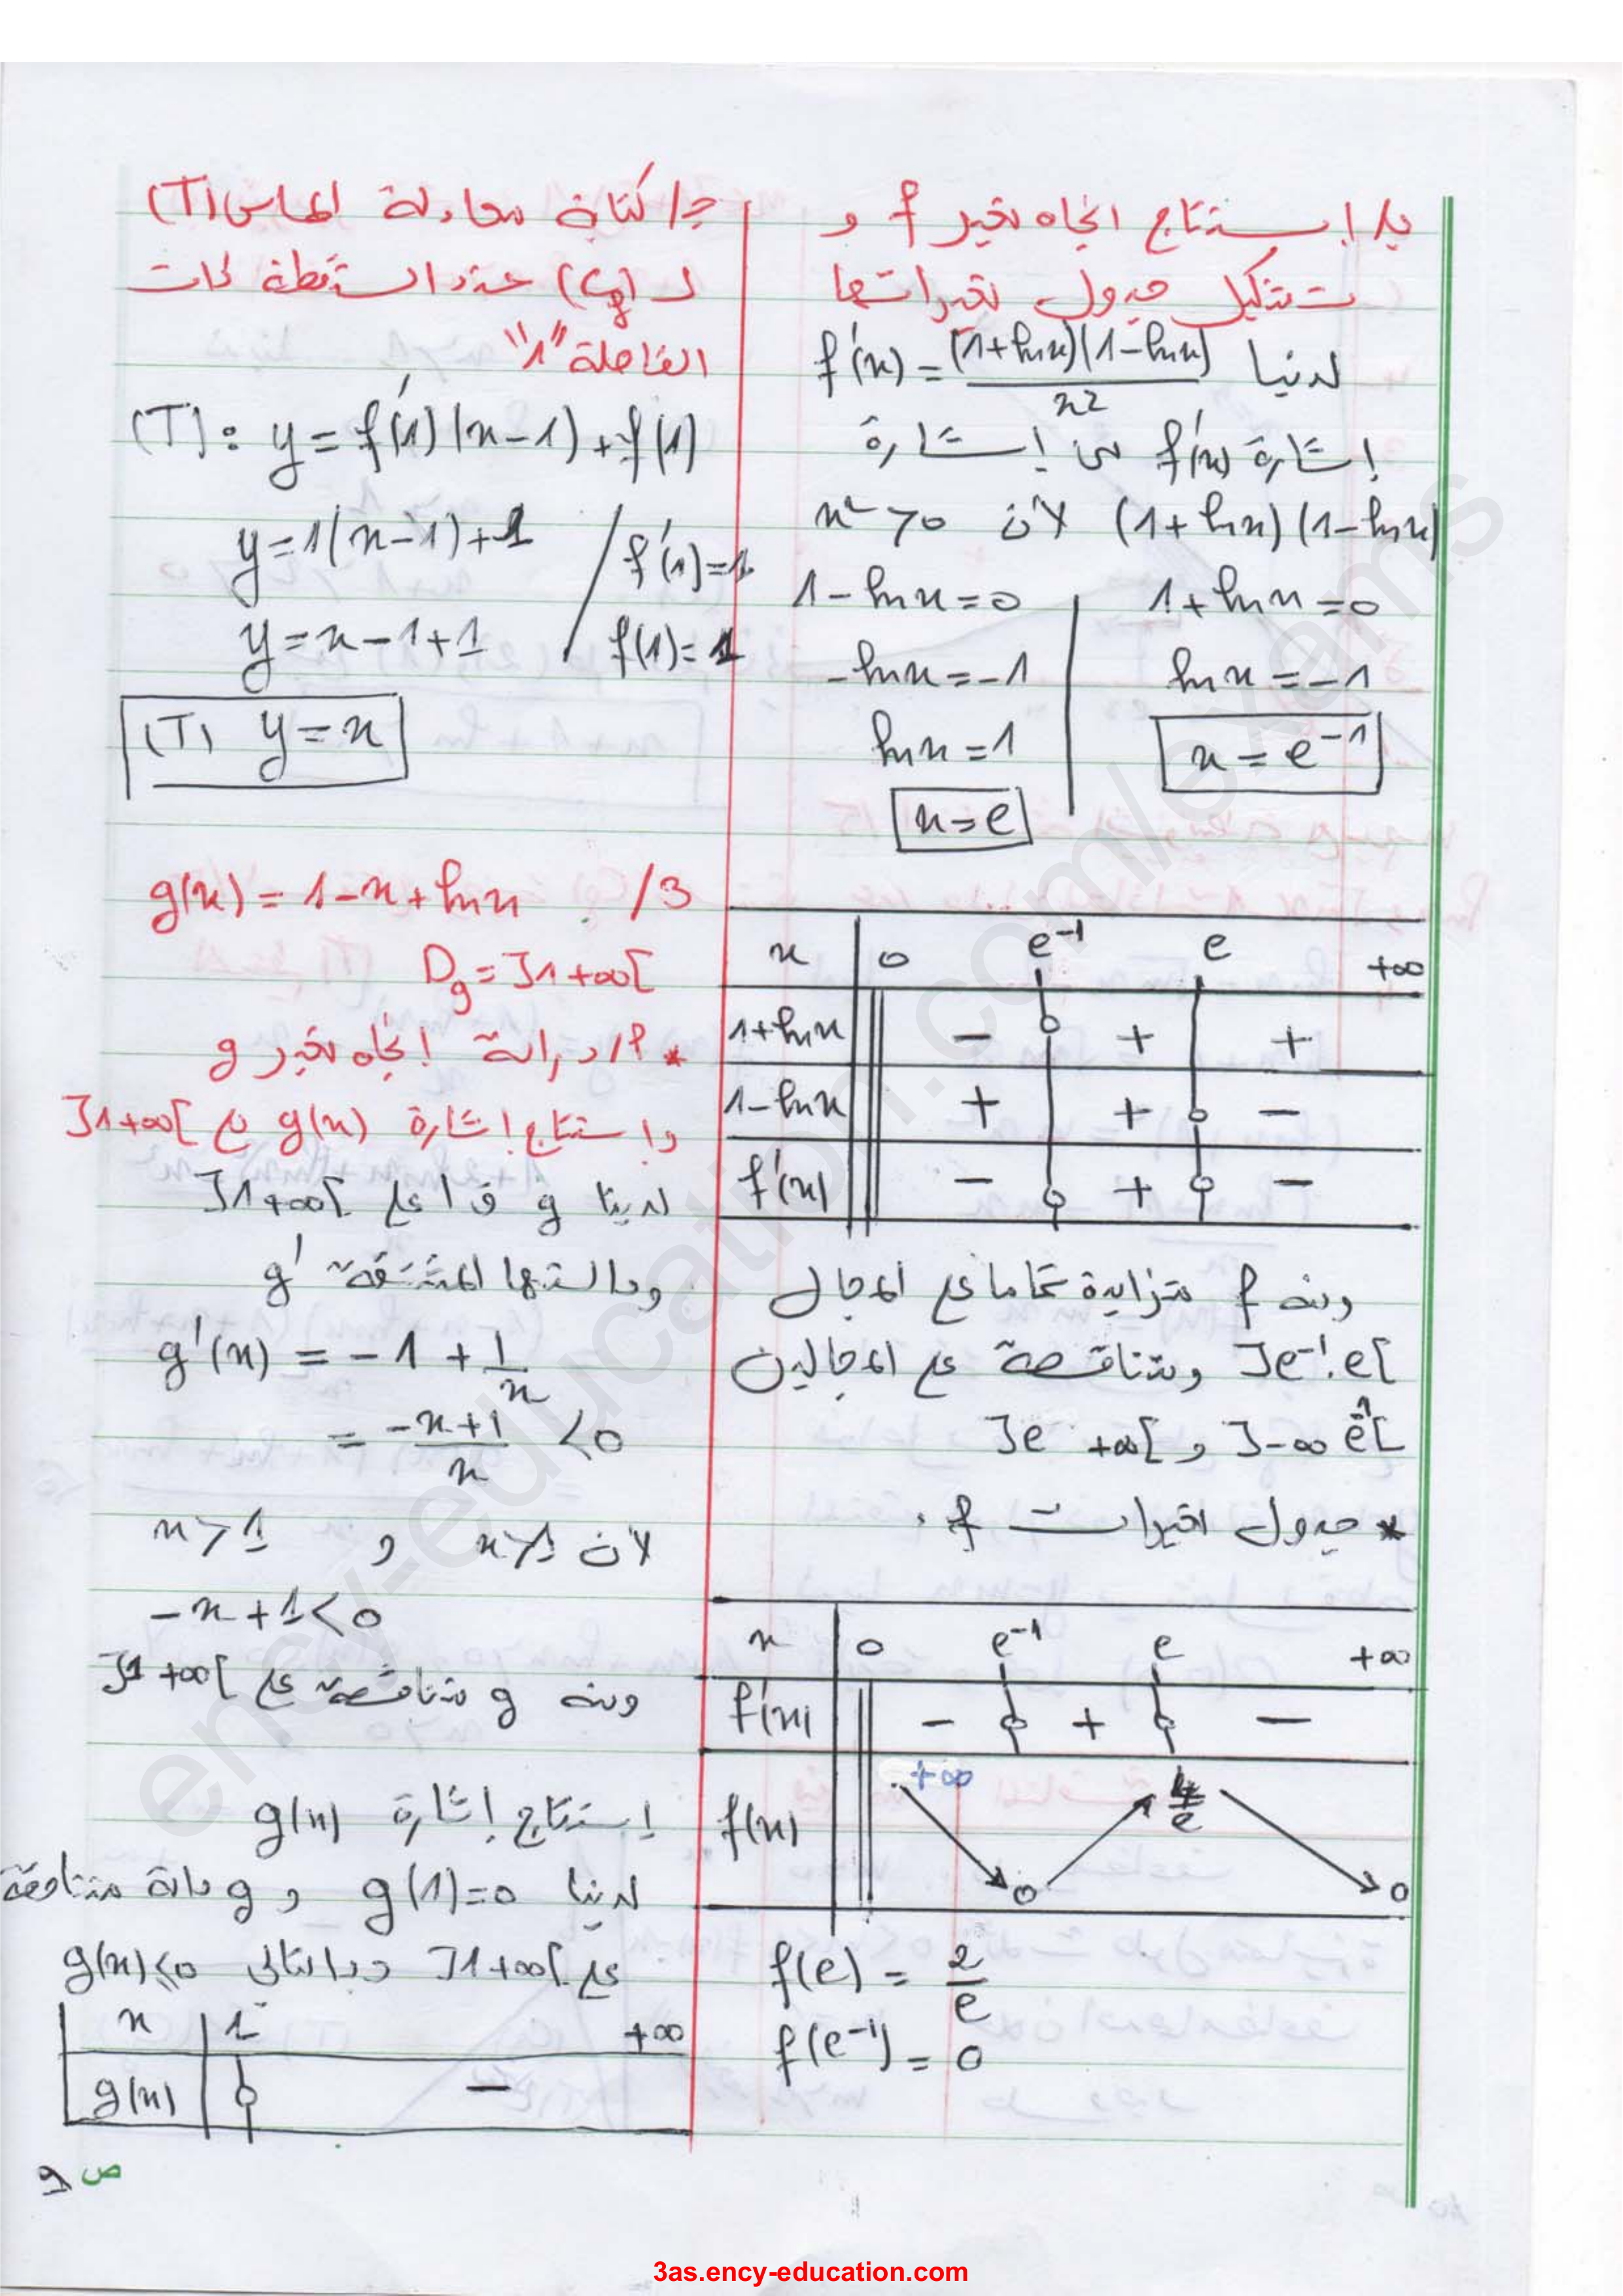 ب/ إستنتاج اتجاه تغير f و
تشكيل جدول تغيراتها
لدينا f'(x) = (1+lnx)(1-lnx) / x²
إشارة f'(x) من إشارة
(1+lnx)(1-lnx) لأن x² > 0
1+lnx=0
lnx=-1
x=e⁻¹
1-lnx=0
-lnx=-1
lnx=1
x=e
x 0 e⁻¹ e +∞
1+lnx - 0 + +
1-lnx + + 0 -
f'(x) - 0 + 0 -
ومنه f متزايدة تماما على المجال
]e⁻¹.e[ ومتناقصة على المجالين
]-∞ e⁻¹[ و ]e +∞[
* جدول تغيرات f.
x 0 e⁻¹ e +∞
f'(x) - 0 + 0 -
f(x) +∞ 0 4/e 0
f(e) = 2/e
f(e⁻¹) = 0
ج/ كتابة معادلة المماس (T)
لـ (Cf) عند النقطة ذات
الفاصلة "1"
(T): y = f'(1)(x-1)+f(1)
y=1(x-1)+1 / f'(1)=1
y=x-1+1 / f(1)=1
(T) y=x
3/ g(x) = 1-x+lnx
Dg = ]1 +∞[
* أ/ دراسة إتجاه تغير g
واستنتاج إشارة g(x) على ]1 +∞[
لدينا g ق ا على ]1 +∞[
ودالتها المشتقة g'
g'(x) = -1 + 1/x
= (-x+1)/x < 0
لأن x>1 و x>1
-x+1<0
ومنه g متناقصة على ]1 +∞[
إستنتاج إشارة g(x)
لدينا g(1)=0 و g دالة متناقصة
على ]1 +∞[ وبالتالي g(x)<0
x 1 +∞
g(x) 0 -
ص 9
ency-education.com/exams
3as.ency-education.com